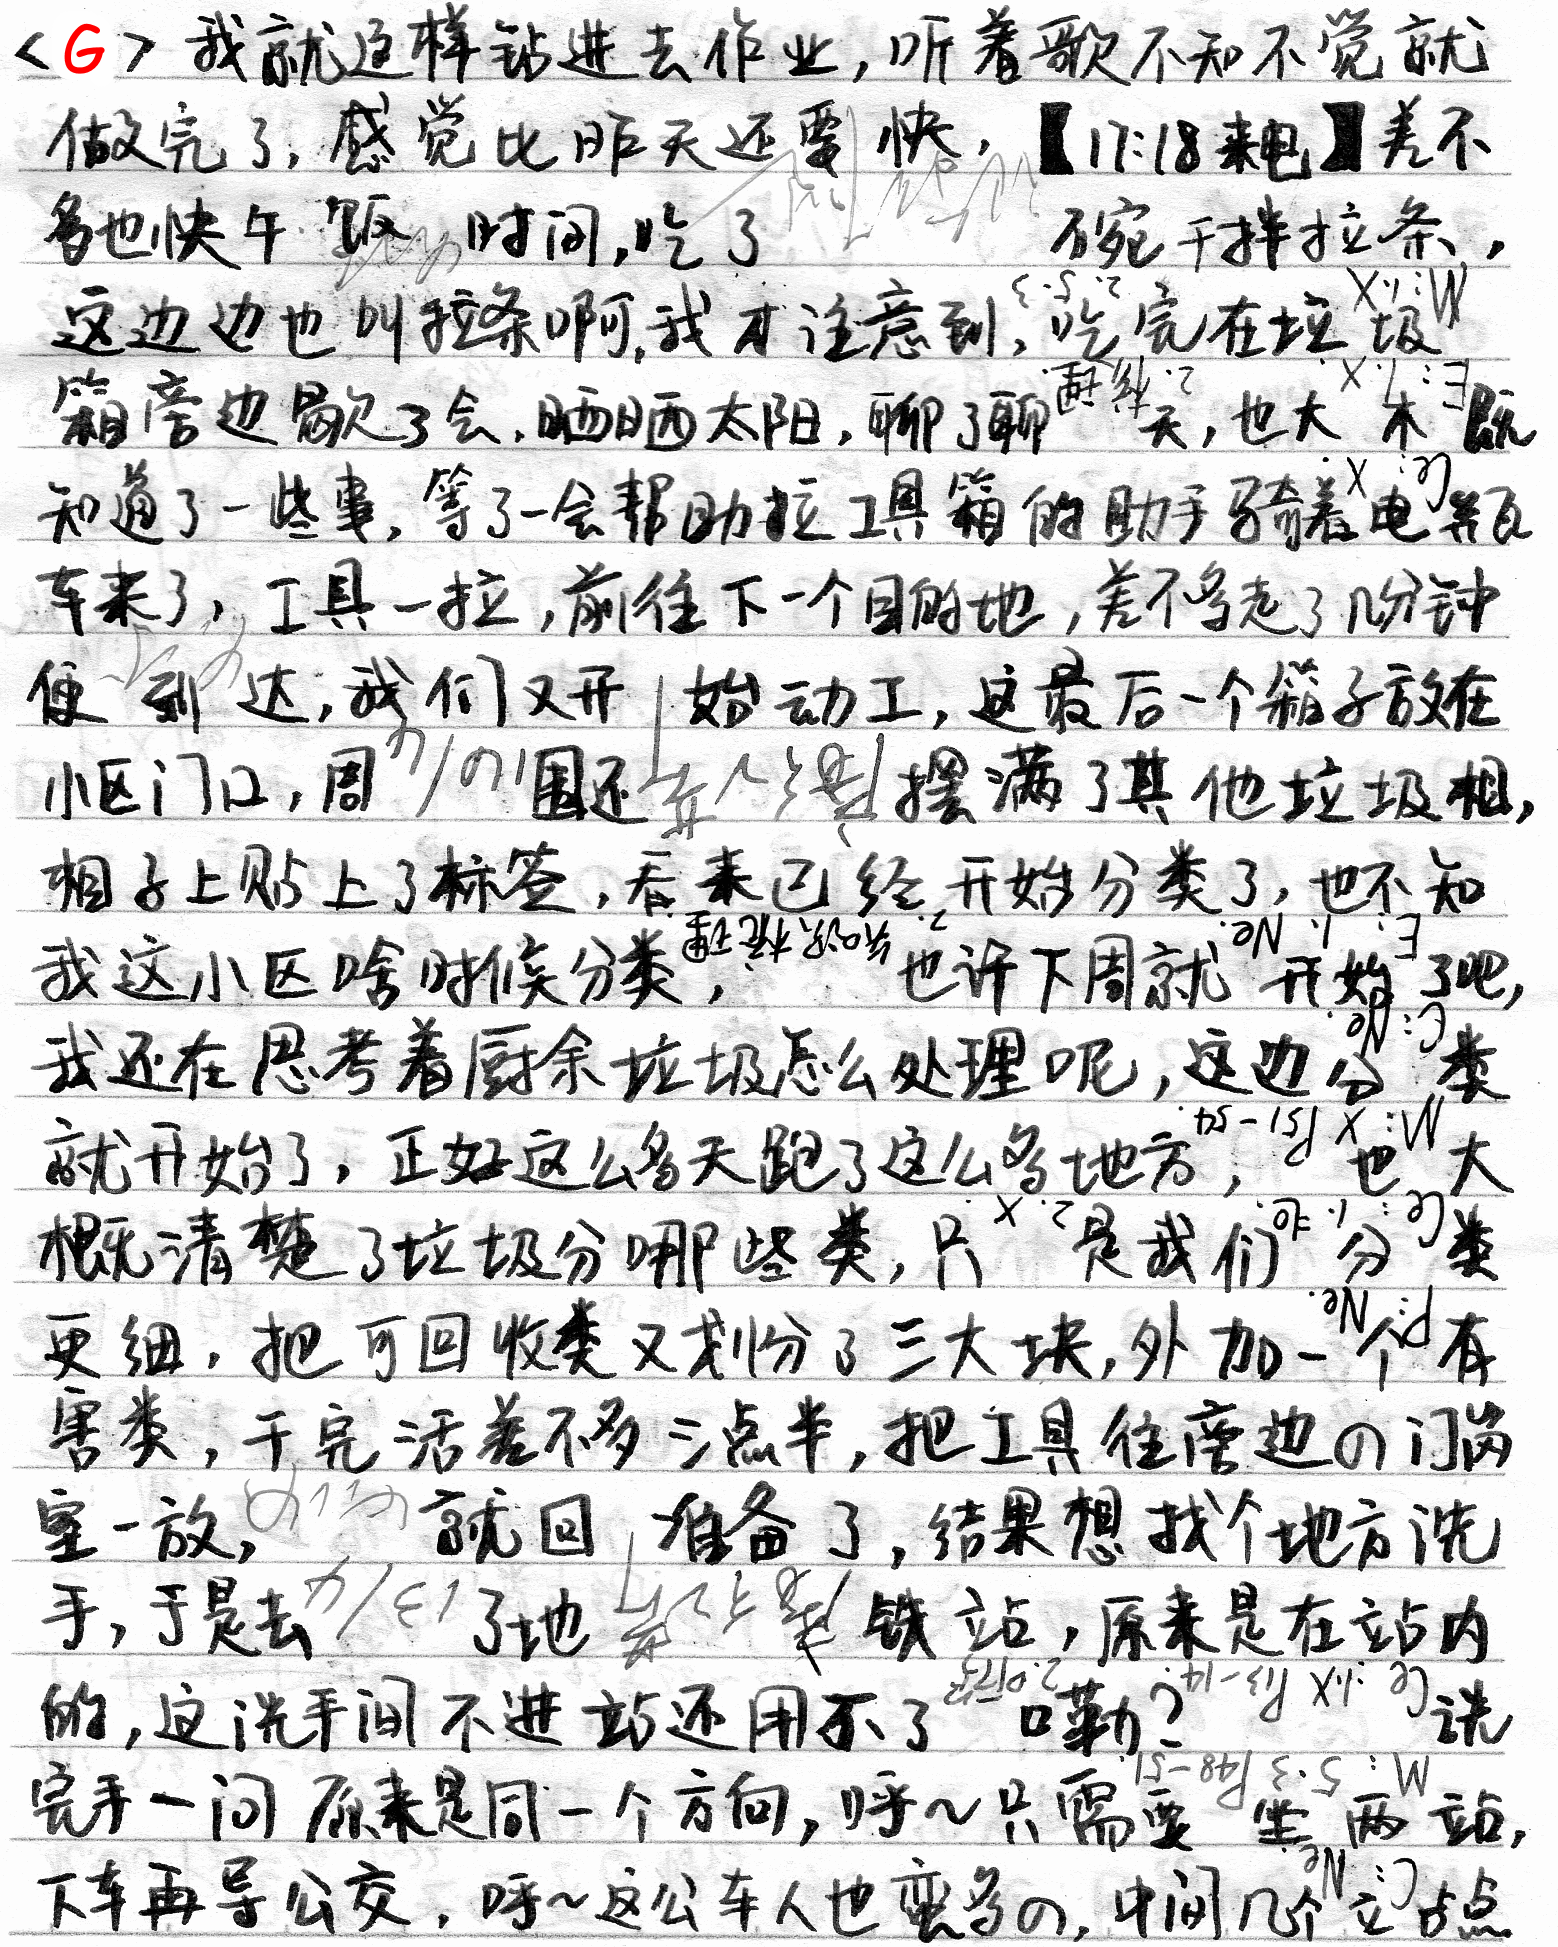 <G> 我就这样钻进去作业,听着歌不知不觉就
做完了,感觉比昨天还要快,【17:18来电】差不
多也快午饭时间,吃了碗干拌拉条,
这边边也叫拉条啊,我才注意到,吃完在垃圾
箱旁边歇了会,晒晒太阳,聊了聊天,也大概
知道了一些事,等了一会帮助拉工具箱的助手骑着电瓶
车来了,工具一拉,前往下一个目的地,差不多走了几分钟
便到达,我们又开始动工,这最后一个箱子放在
小区门口,周围还摆满了其他垃圾相,
相子上贴上了标签,看来已经开始分类了,也不知
我这小区啥时候分类,也许下周就开始了吧,
我还在思考着厨余垃圾怎么处理呢,这边分类
就开始了,正好这么多天跑了这么多地方,也大
概清楚了垃圾分哪些类,只是我们分类
更细,把可回收类又划份了三大块,外加一个有
害类,干完活差不多三点半,把工具往旁边の门岗
室一放,就回准备了,结果想找个地方洗
手,于是去了地铁站,原来是在站内
的,这洗手间不进站还用不了嘞?洗
完手一问原来是同一个方向,呼~只需要坐两站,
下车再导公交,呼~这公车人也蛮多の,中间几个站点